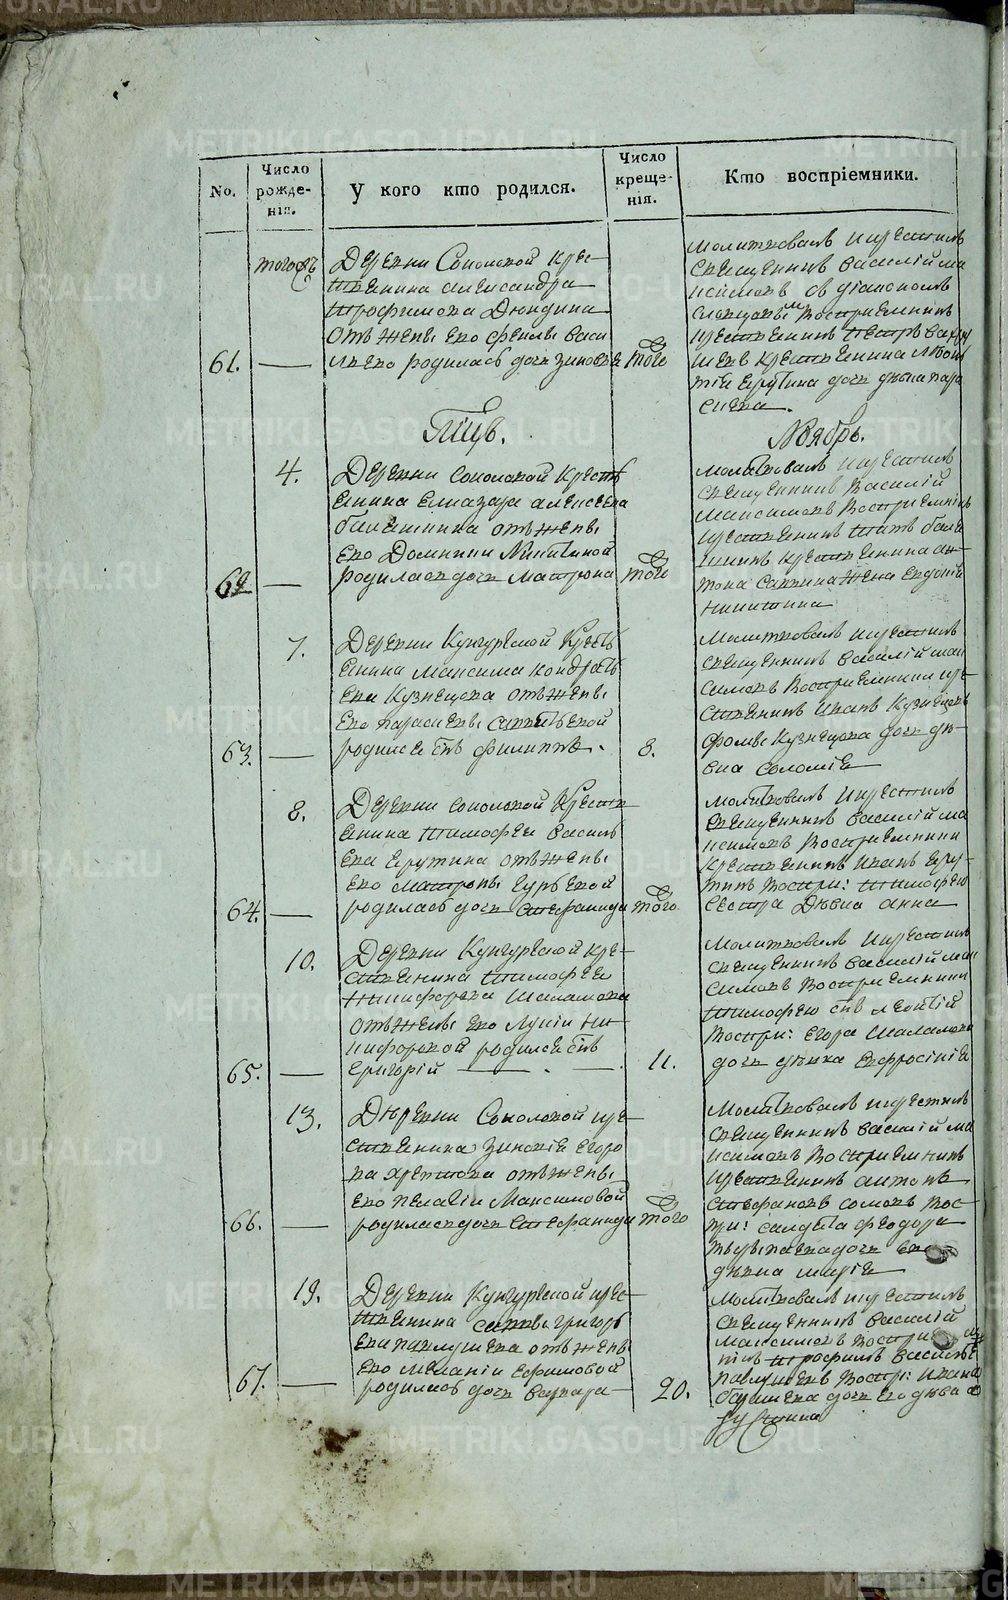 No.
Число рожде-
нія.
У кого кто родился.
Число креще-
нія.
Кто воспріемники.
61.
тогожъ
Деревни Соколовой кре-
стьянина Александра
Трофимова Дюндина
отъ жены его Феклы Васи
льево родилась дочь Зиновья
того
Молитвовалъ и крестилъ
священникъ Василий Ма
ксимовъ съ діакономъ
воспріемникъ
крестьянинъ Петръ
крестьянина
Ерутина дочь девка Пара
скева.
Мцъ.
Ноябрь.
62
4.
Деревни Соколовой Кресть
янина Елиазара Алексеева
балашнина отъ жены
его Домнии Никитиной
родилась дочь Матрона
того
Молитвовалъ и крестилъ
священникъ Василій
Максимовъ Воспріемникъ
крестьянинъ Титъ бала
шнинъ крестьянина Ан-
тона Саввина жена Евдокія
Никитина
63.
7.
Деревни Кунгурской Кресть
янина Максима Кондрать
ева Кузнецова отъ жены
его Параскевы Савватьевой
родился сынъ Филиппъ.
8.
Молитвовалъ и крестилъ
священникъ Василій Мак
симовъ Воспріемники кре
стьянинъ Иванъ Кузнецовъ
Фомы Кузнецова дочь дѣ
вка Соломія
64.
8.
Деревни Соколовой Кресть
янина Тимофея Василь
ева Ерутина отъ жены
его Матроны Гурьевой
родилась дочь Стефанида
того
Молитвовалъ и крестилъ
священникъ Василій Ма
ксимовъ Воспріемники
крестьянинъ Иванъ Еру-
тинъ Воспри: Тимофея
сестра Дѣвка Анна
65.
10.
Деревни Кунгурской кре-
стьянина Тимофея
Никифорова Шаламова
отъ жены его Лукіи Ни-
кифоровой родился сынъ
Григорій
11.
Молитвовалъ и крестилъ
священникъ Василій Мак
симовъ Воспріемники
Тимофея сынъ Леонтій
Воспри: Егора Шаламова
дочь дѣвка Евфросинія
66.
13.
Деревни Соколовой кре-
стьянина Зиновія Егоро
ва Хрептова отъ жены
его Пелагіи Максимовой
родилась дочь Стефанида
того
Молитвовалъ и крестилъ
священникъ Василій Ма
ксимовъ Воспріемникъ
крестьянинъ Антонъ
Стефановъ Вос-
при: салдата Феодора
дочь его
дѣвка Марія
67.
19.
Деревни Кунгурской крес-
тьянина Саввы Григорь
ева Павлушева отъ жены
его Меланіи Ефимовой
родилась дочь Варвара
20.
Молитвовалъ и крестилъ
священникъ Василій
Максимовъ Воспри
никъ Трофимъ Васильевъ
Павлушевъ Воспри: Ивана
дочь его дѣвка